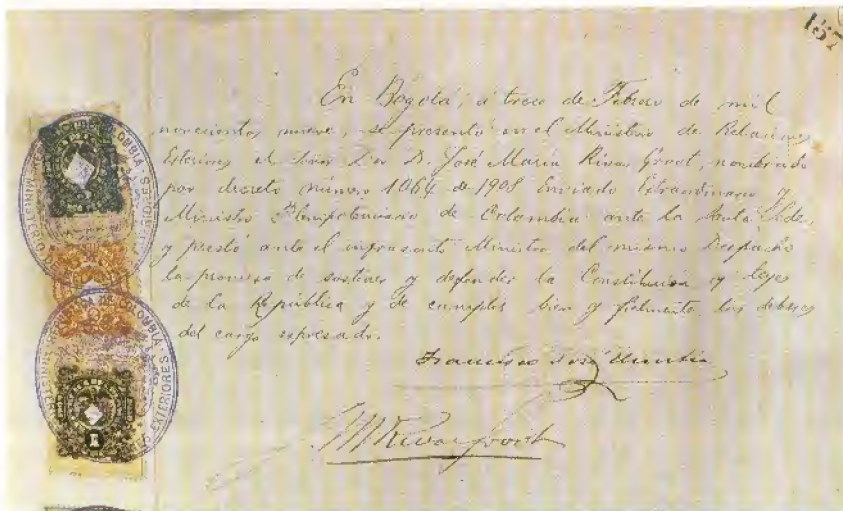 157
En Bogotá, á trece de Febrero de mil
novecientos nueve, se presentó en el Ministerio de Relaciones
Exteriores el Señor Dor D. José María Rivas Groot, nombrado
por decreto número 1064 de 1908 Enviado Extraordinario y
Ministro Plenipotenciario de Colombia ante la Santa Sede,
y prestó ante el infrascrito Ministro del mismo Despacho
la promesa de sostener y defender la Constitución y leyes
de la República y de cumplir bien y fielmente los deberes
del cargo expresado.
Francisco José Urrutia
JM Rivas Groot
COLOMBIA
MINISTERIO
EXTERIORES
DE COLOMBIA
EXTERIORES
1